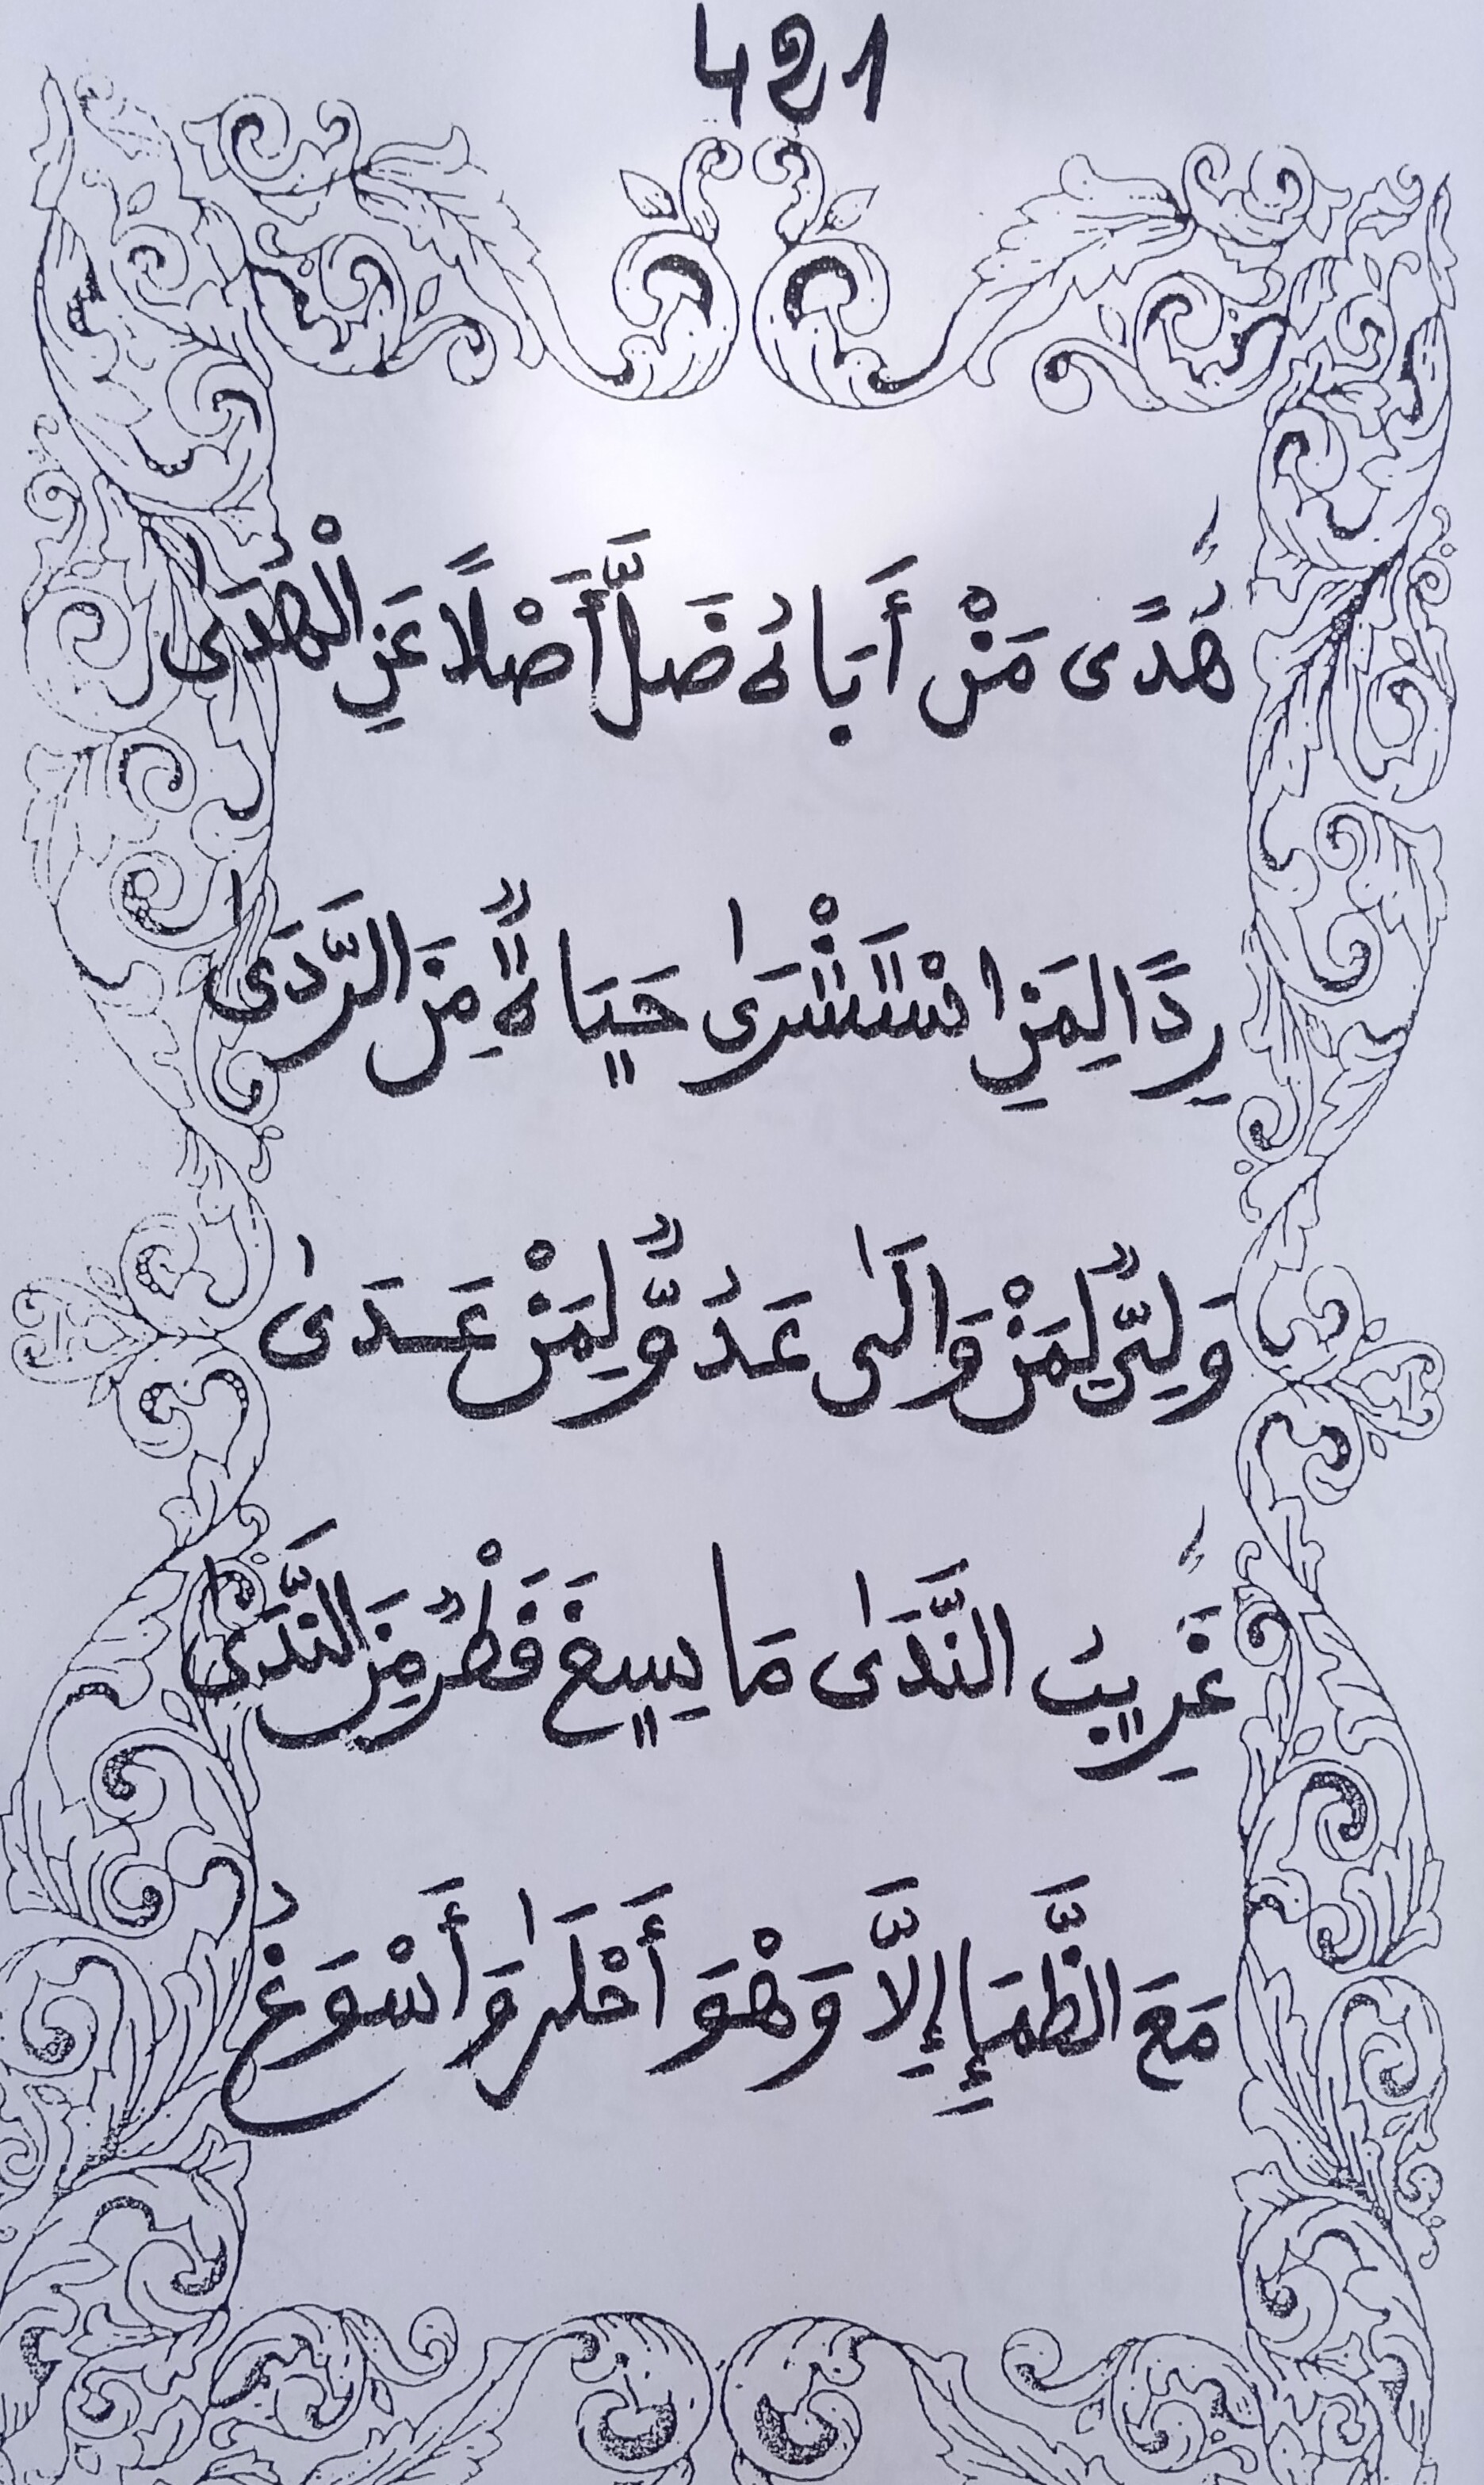 421
هُدًى مَنْ أَبَاهُ ضَلَّ أَصْلًا عَنِ الْهُدَىٰ
رِدًا لِمَنِ اسْتَشْرَىٰ حَيَاةٌ مِنَ الرَّدَىٰ
وَلِيٌّ لِمَنْ وَالَىٰ عَدُوٌّ لِمَنْ عَدَىٰ
غَرِيبُ النَّدَىٰ مَا سِيغَ قَطْرٌ مِنَ النَّدَىٰ
مَعَ الظَّمَإِ إِلَّا وَهْوَ أَحْلَىٰ وَأَسْوَغُ